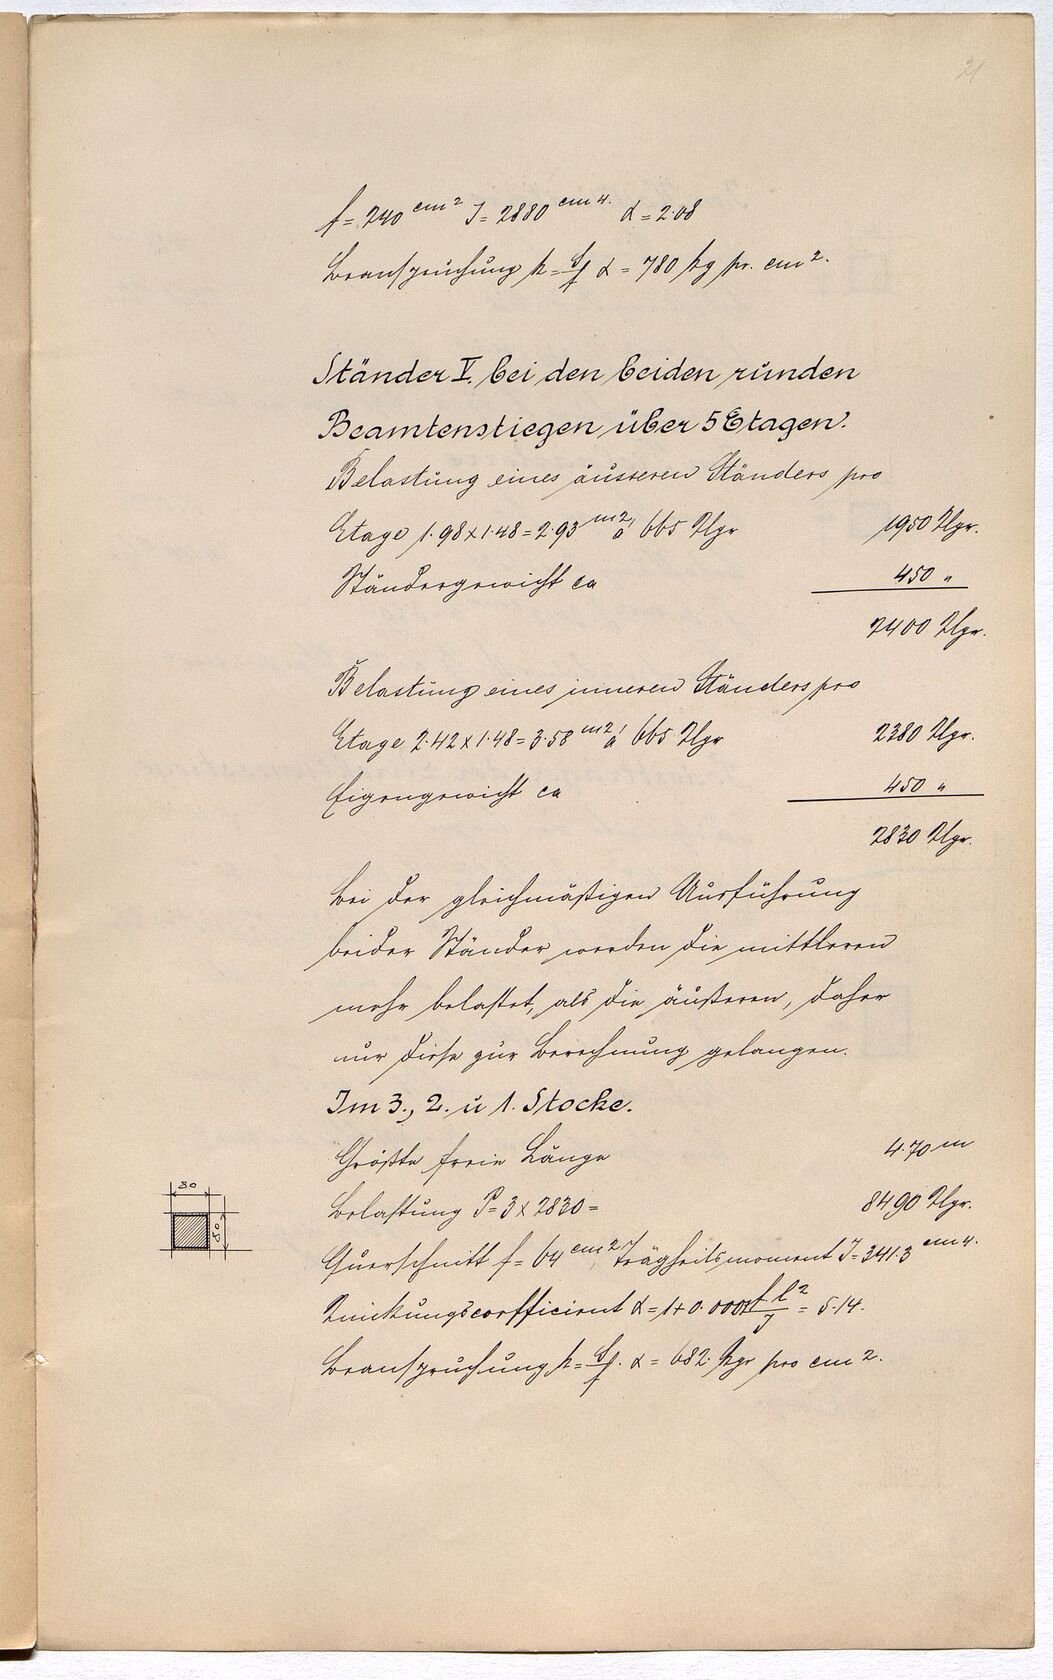 21
f = 240 cm² J = 2880 cm⁴. α = 2·08
Beanspruchung k = S/f α = 780 kg pr. cm².
Ständer V. bei den beiden runden
Beamtenstiegen über 5 Etagen.
Belastung eines äusseren Ständers pro
Etage 1·98 x 1·48 = 2·93 m² à 665 Klgr 1950 Klgr.
Ständergewicht ca 450 „
2400 Klgr.
Belastung eines inneren Ständers pro
Etage 2·42 x 1·48 = 3·58 m² à 665 Klgr 2380 Klgr.
Eigengewicht ca 450 „
2830 Klgr.
Bei der gleichmäßigen Ausführung
beider Ständer werden die mittleren
mehr belastet, als die äußeren, daher
nur diese zur Berechnung gelangen.
Im 3., 2. u 1. Stocke.
Größte freie Länge 4·70 m
80
80
Belastung P = 3 x 2830 = 8490 Klgr.
Querschnitt f = 64 cm², Trägheitsmoment J = 341·3 cm⁴.
Knickungscoefficient α = 1 + 0·0001 f l²/J = 5·14.
Beanspruchung k = S/f · α = 682· Kgr pro cm².